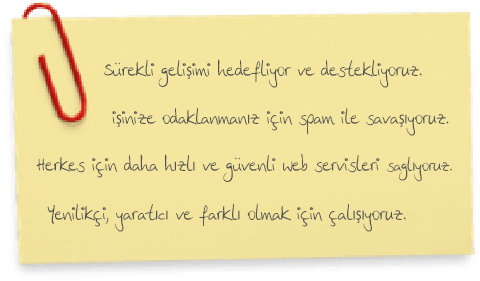 Sürekli gelişimi hedefliyor ve destekliyoruz.
işinize odaklanmanız için spam ile savaşıyoruz.
Herkes için daha hızlı ve güvenli web servisleri sağlıyoruz.
Yenilikçi, yaratıcı ve farklı olmak için çalışıyoruz.